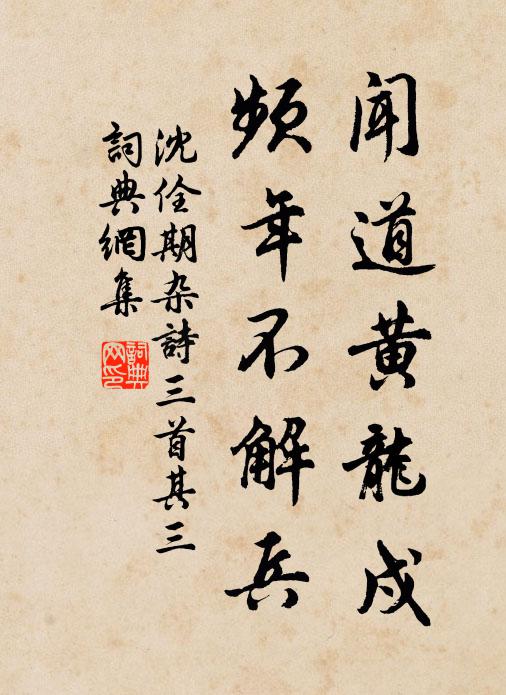 聞道黄龍戍
頻年不解兵
沈佺期杂詩三首其三
詞典網集
詞典网印